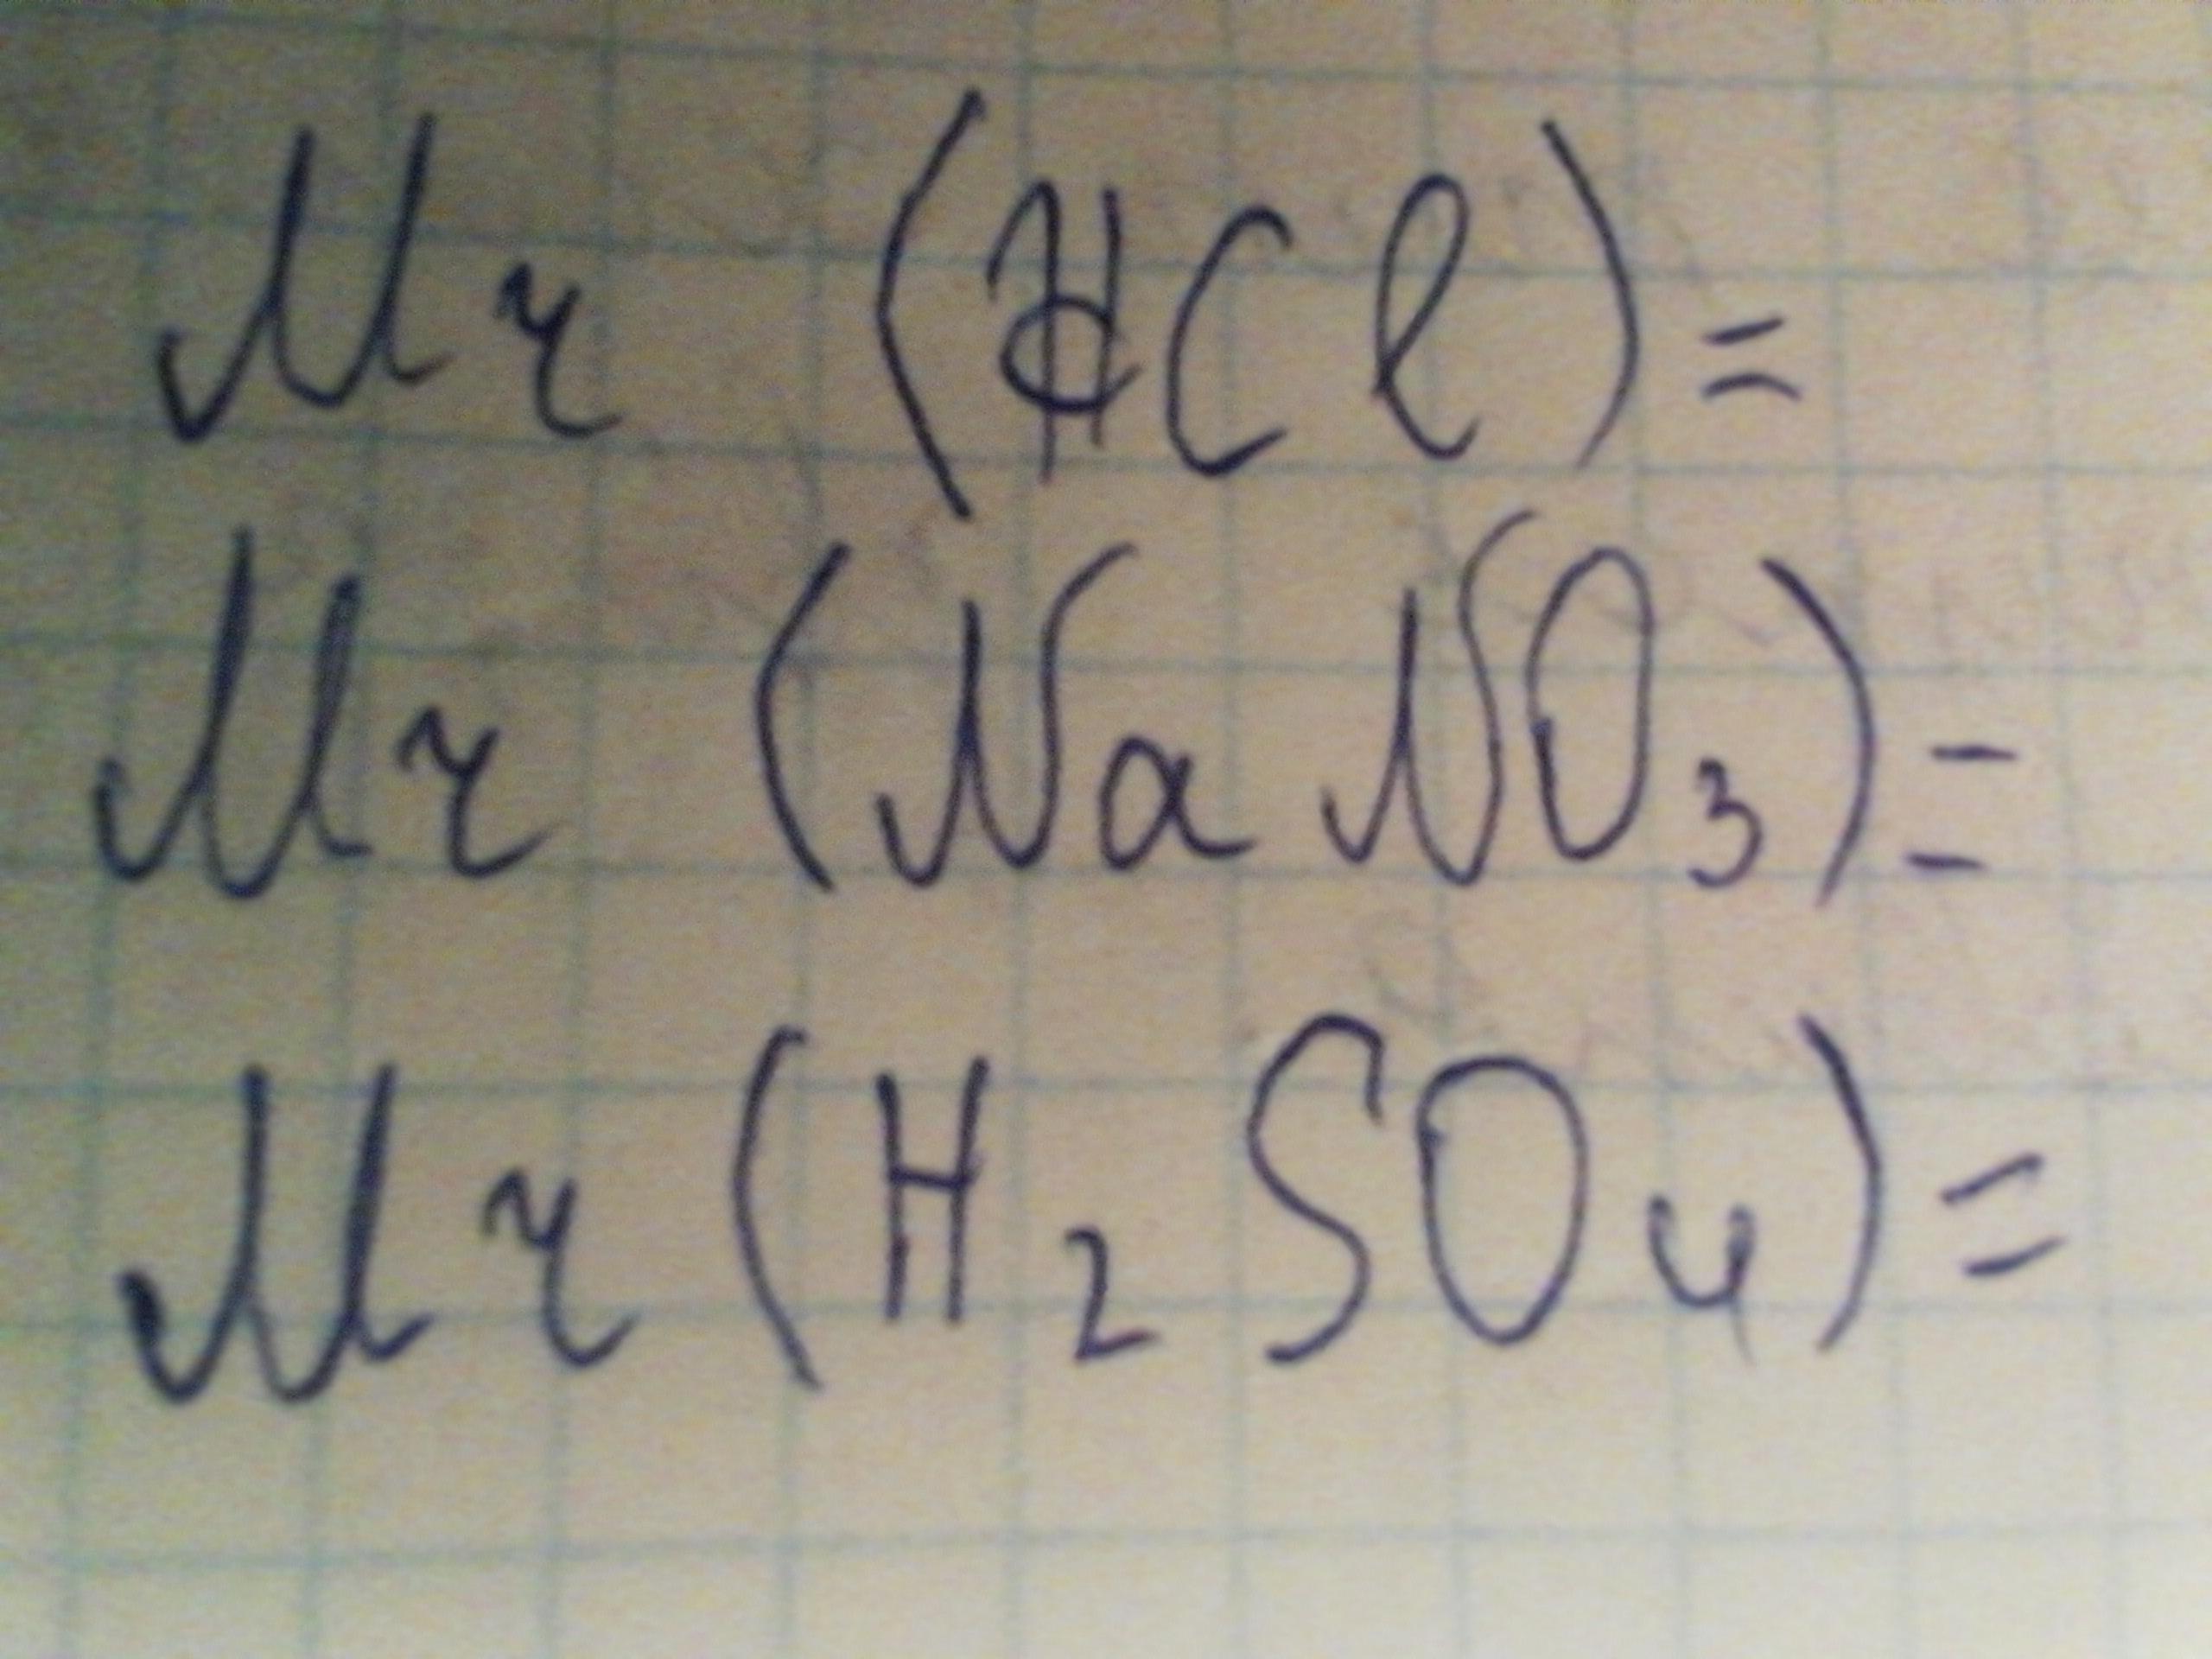 Mr (HCl)=
Mr (NaNO₃)=
Mr (H₂SO₄)=